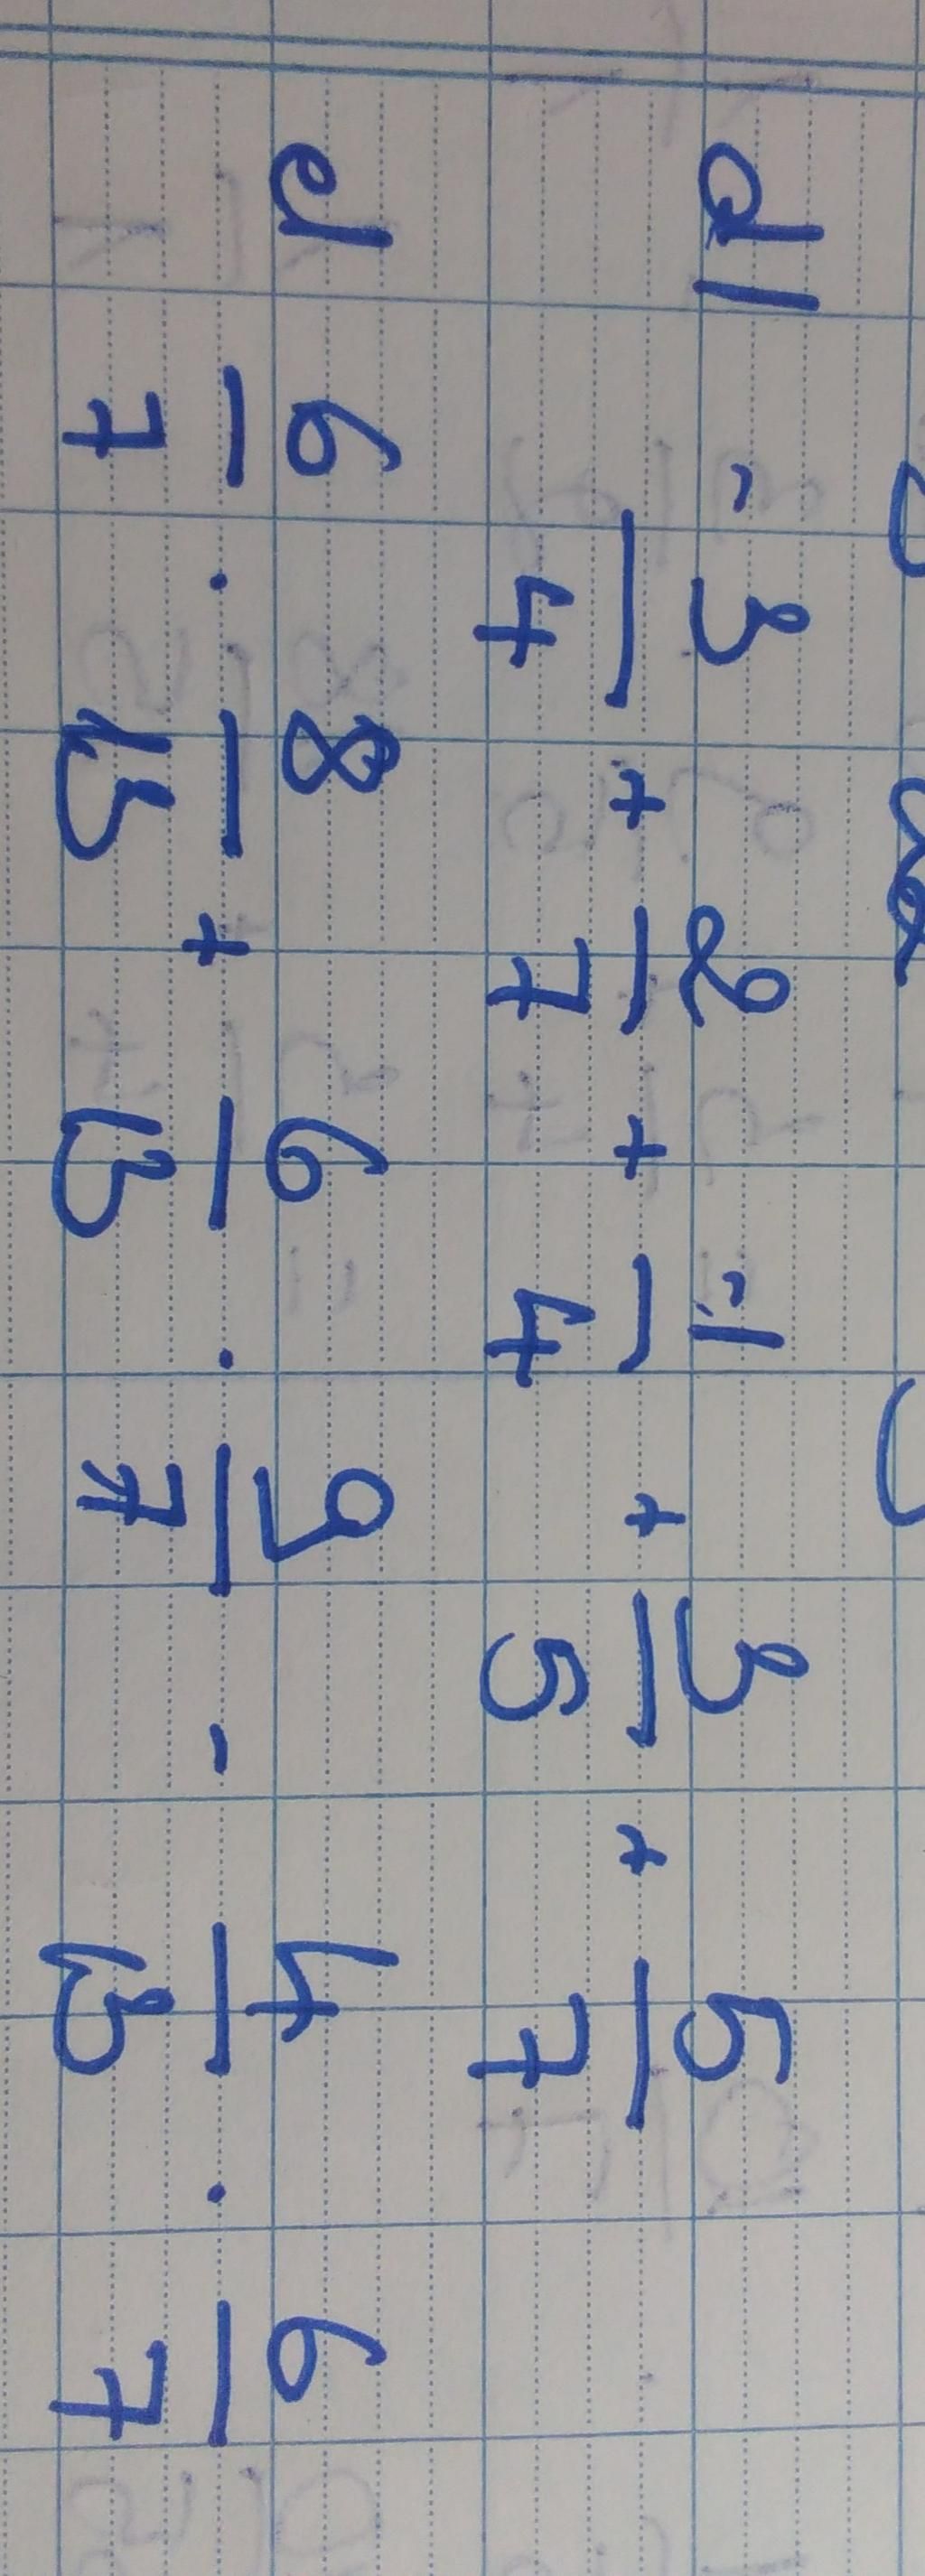 d) -3/4 + 2/7 + -1/4 + 3/5 + 5/7
e) 6/7 . 8/13 + 6/13 . 9/7 - 4/13 . 6/7